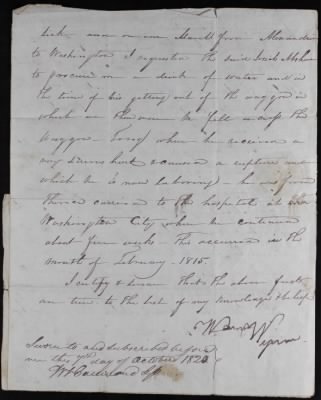 sick and on our March from Alexandria
to Washington I requested the said
to procure me a drink of water and in
the time of his getting out of the waggon in
which we then were he fell across the
Waggon Tong when he received a
very serious hurt & caused a rupture under
which he is now laboring he was from
thence carried to the hospital at
Washington City when he continued
about four weeks This occurred in the
month of February 1815.
I certify & swear that the above facts
are true to the best of my knowledge & belief
Sworn to and subscribed before
me this day of October 182